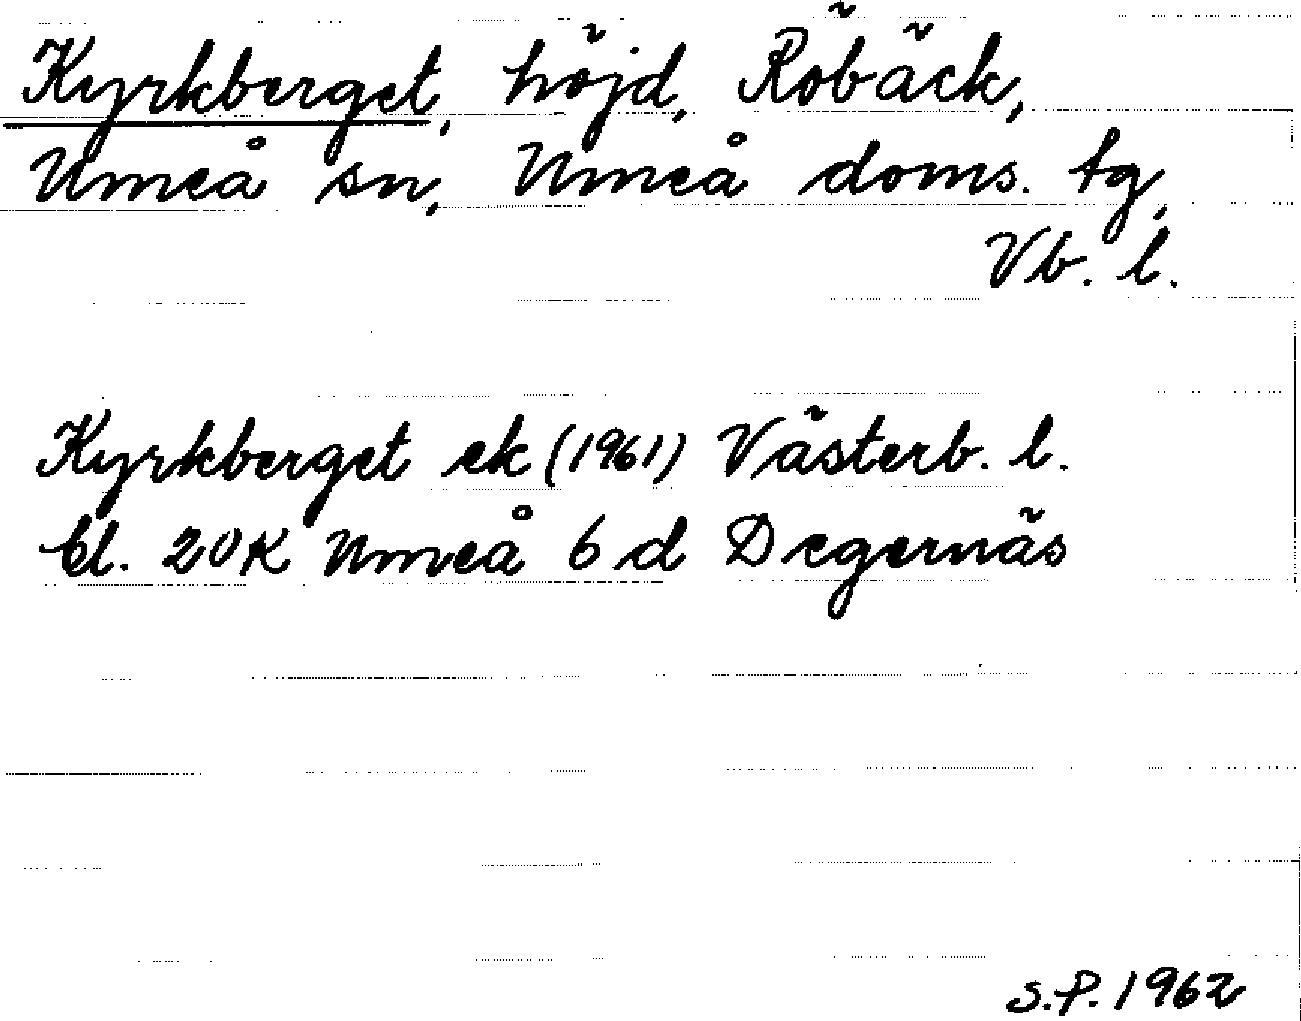 Kyrkberget, höjd, Röbäck,
Umeå sn, Umeå doms. tg,
Vb. l.
Kyrkberget ek (1961) Västerb. l.
bl. 20K Umeå 6 d Degernäs
S.P. 1962